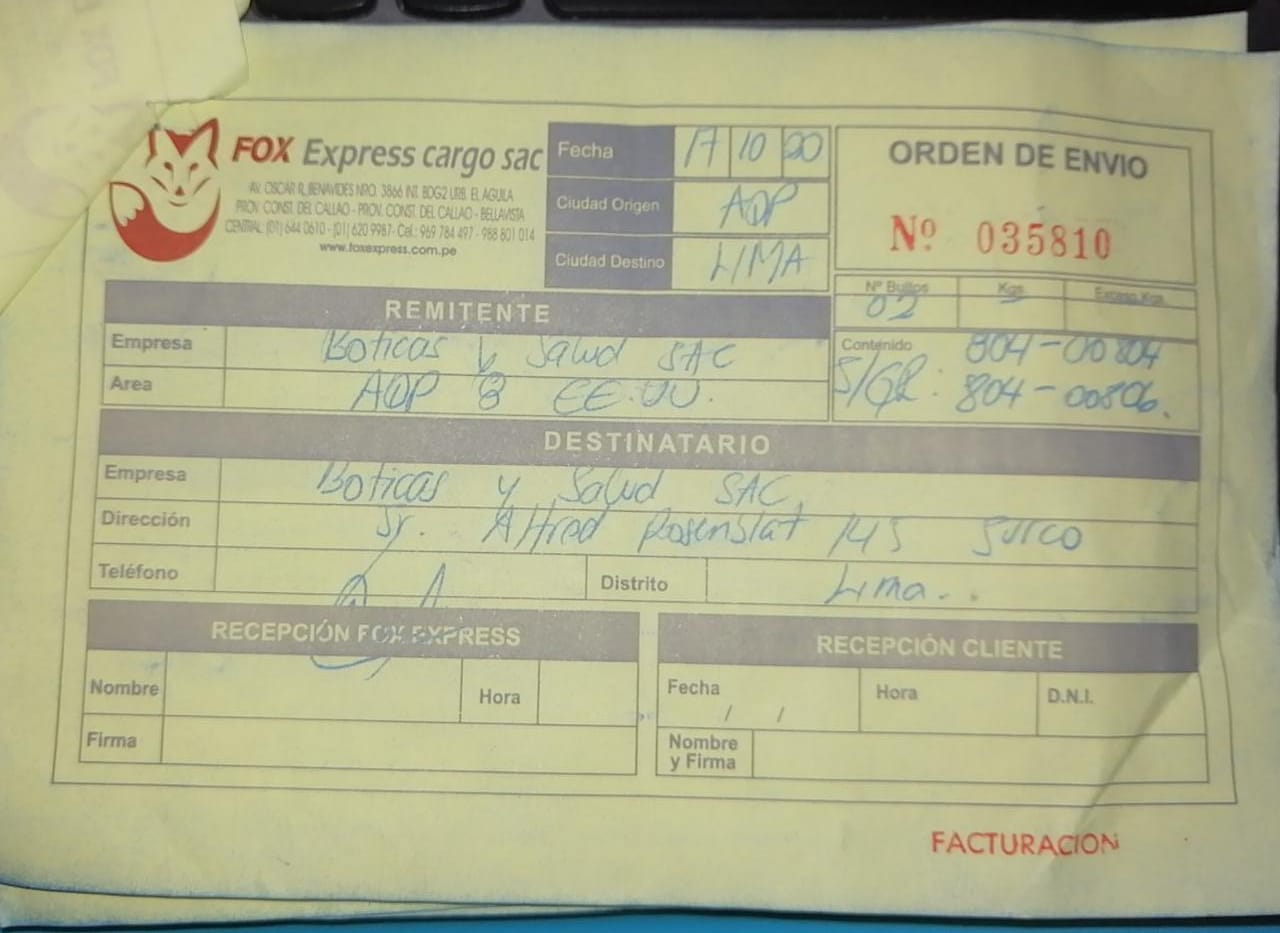 FOX Express cargo sac
AV. OSCAR R. BENAVIDES NRO. 3866 INT. BDG2 URB. EL AGUILA
PROV. CONST. DEL CALLAO - PROV. CONST. DEL CALLAO - BELLAVISTA
CENTRAL: (01) 644 0610 - (01) 620 9987- Cel.: 969 784 497 - 988 801 014
www.foxexpress.com.pe
Fecha 17 10 20
Ciudad Origen AQP
Ciudad Destino LIMA
ORDEN DE ENVIO
Nº 035810
Nº Bultos Kgs. Exceso Kgs.
02
REMITENTE
Empresa Boticas y Salud SAC
Area AQP 8 EE.UU.
Contenido 804-00804
S/GR: 804-00806.
DESTINATARIO
Empresa Boticas y Salud SAC
Dirección Jr. Alfred Rosenslat 145 Surco
Teléfono Distrito Lima.
RECEPCIÓN FOX EXPRESS
Nombre Hora
Firma
RECEPCIÓN CLIENTE
Fecha / / Hora D.N.I.
Nombre
y Firma
FACTURACION